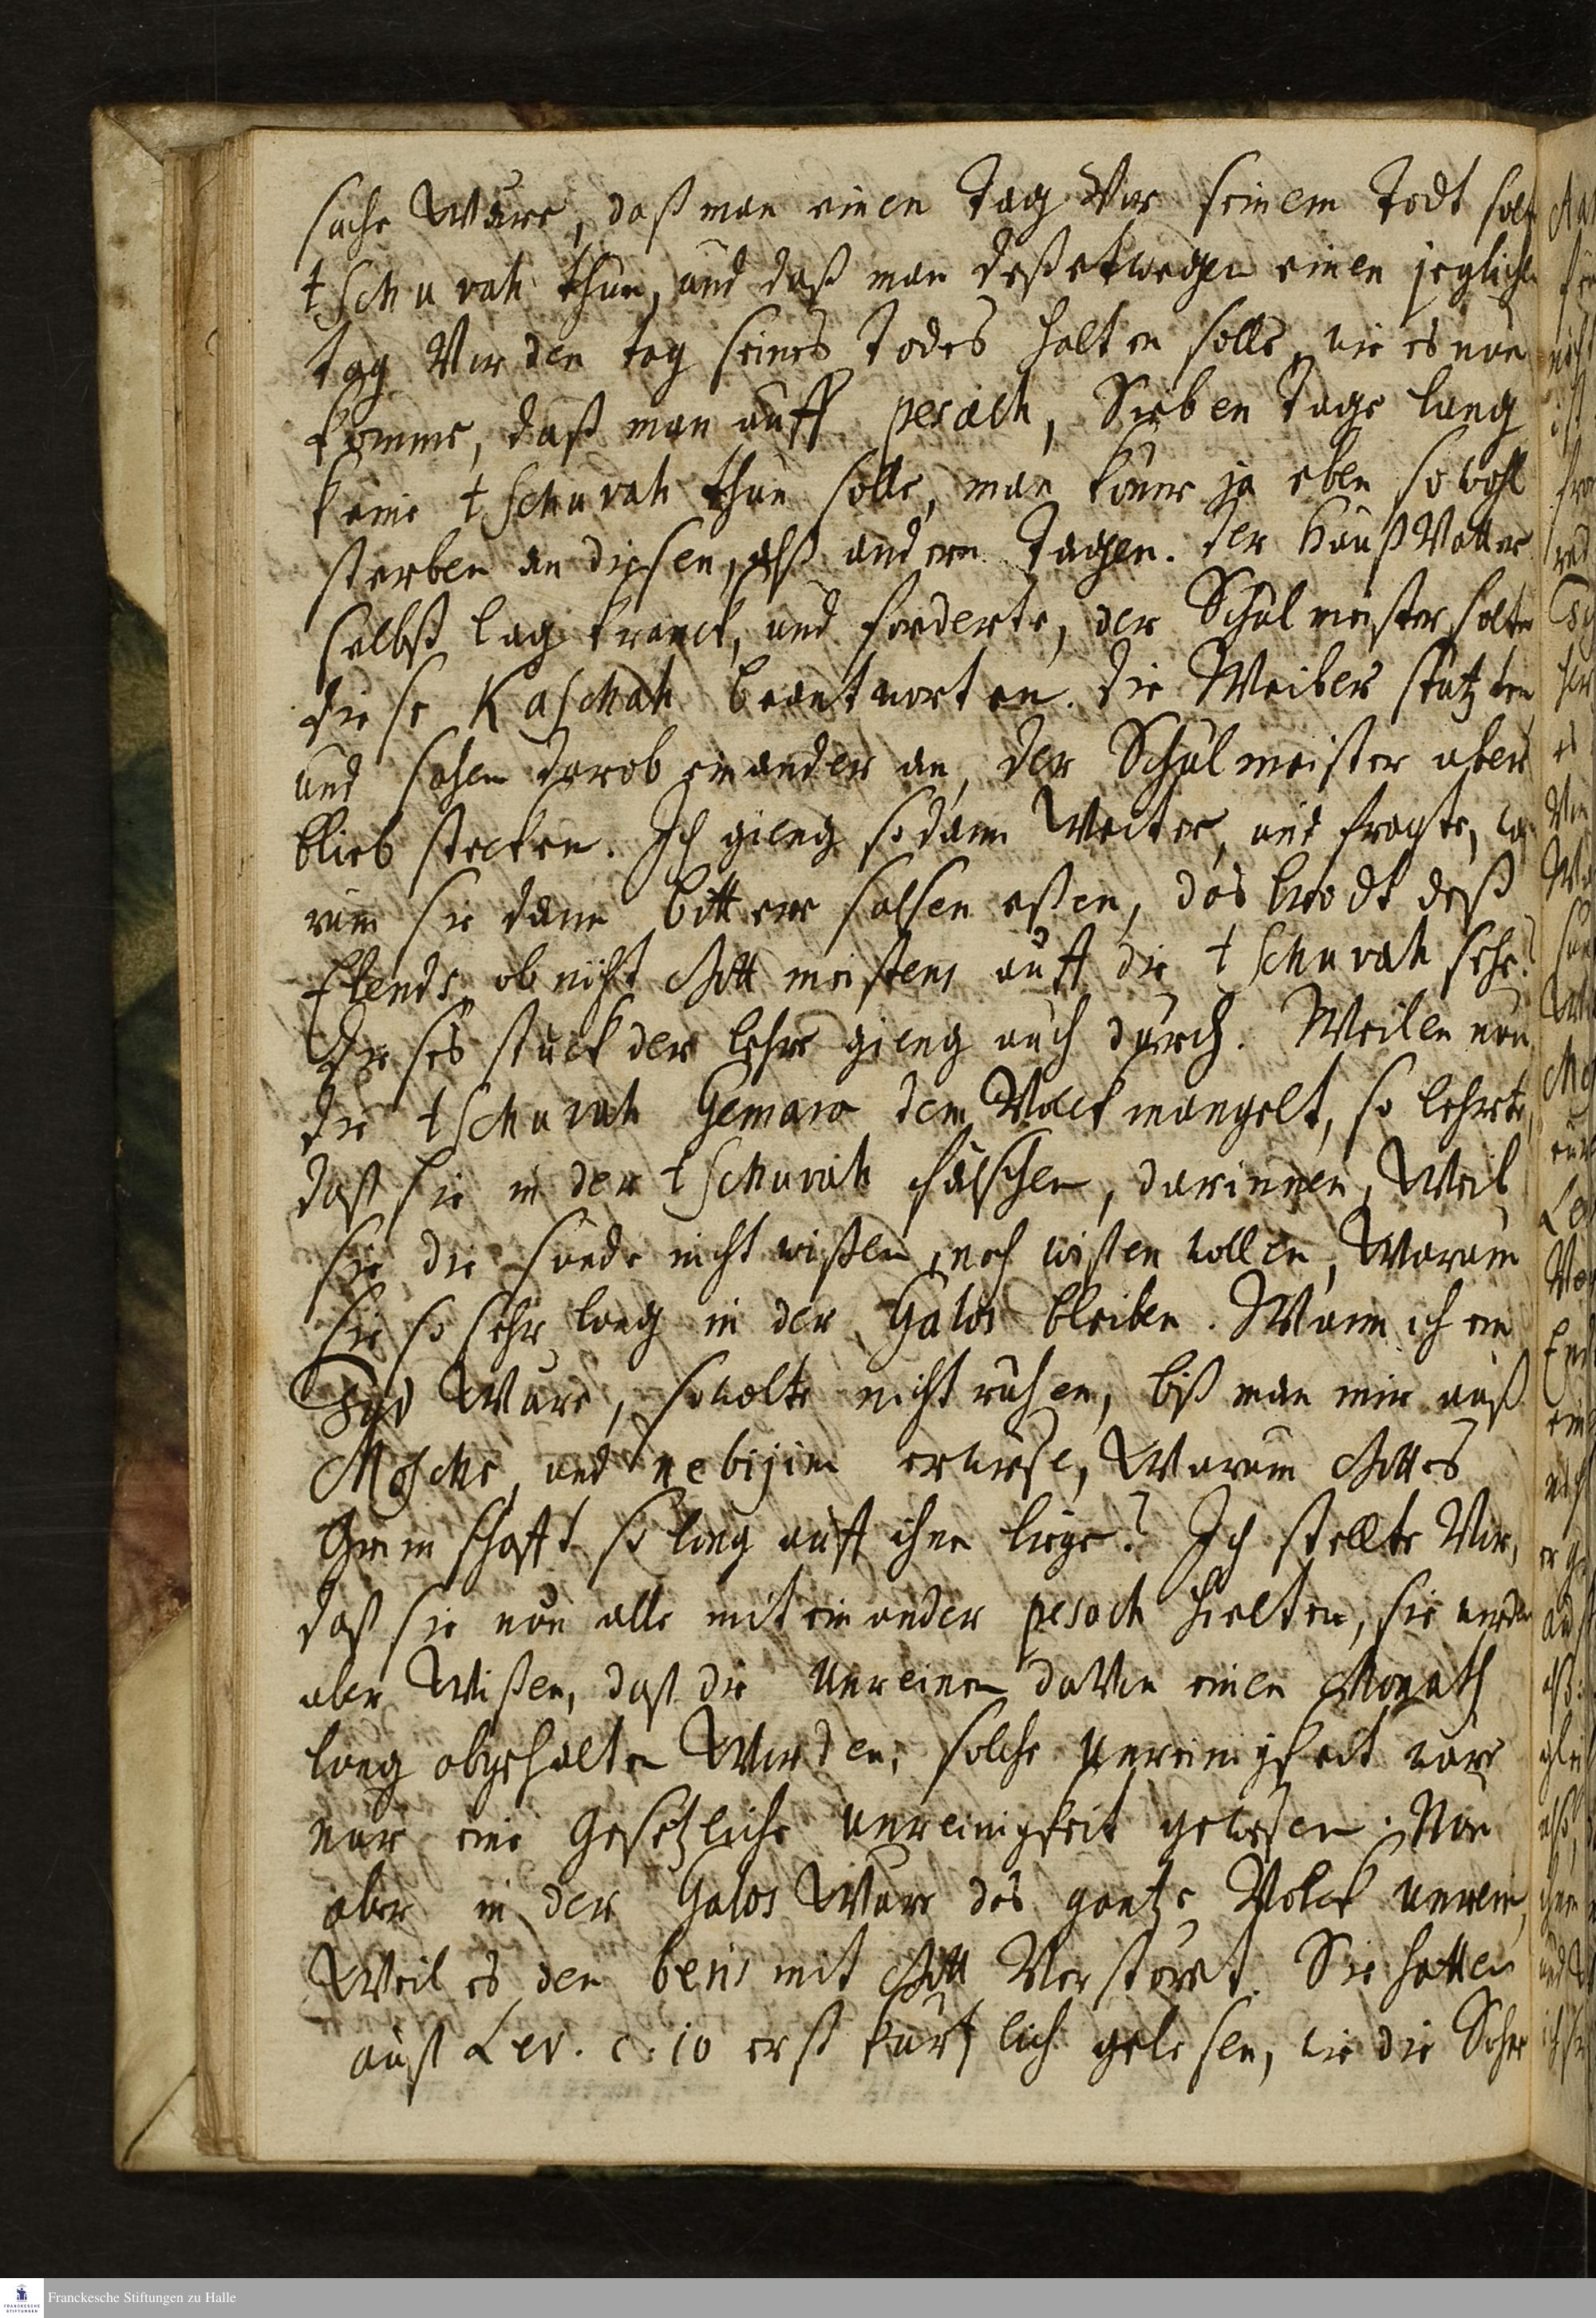 sache Ware, daß man einen Tag Vor seinem Todt soll
tschuvah thun, und daß man deßetwegen einen jeglichen
tag Vor den tag seines Todes halten solle, wie es nun
komme, daß man auff pesach, Sieben Tage lang
keine tschuvah thun solle, man könne ja eben so wohl
sterben an diesen, alß andern Tagen. Der HaußVatter
selbst lag kranck, und forderte, der Schulmeister solte
diese Kaschah beantworten. Die Weiber stutzten
und sahen darob einander an, der Schulmeister aber
blieb stecken. Ich gieng sodann Weiter, und fragte, wa-
rum sie dann bittere salsen eßen, das brodt deß
Elends, ob nicht Gott meistens auff die tschuvah sehe?
Dieses stuck der lehre gieng auch durch. Weilen nun
die tschuvah Gemaro dem Volck mangelt, so lehrte,
daß sie in der tschuvah fälschen, darinnen, Weil
sie die sünde nicht wißen, noch wißen wollen, Warum
sie so sehr lang in der Galos bleiben. Wann ich ein
Jud Ware, so wolte nicht ruhen, biß man mir auß
Mosche, und nebijim erwiese, Warum Gottes
Grimschafft so lang auff ihnen liege? Ich stellte Vor,
daß sie nun alle miteinander pesach hielten, sie werden
aber Wißen, daß die Unreinen daVon einen Monath
lang abgehalten Worden, solche Unreinigkeit ware
nur eine Gesetzliche Unreinigkeit gewesen. Nun
aber in der Galos Ware das gantze Volck unrein,
Weil es den beris mit Gott Verstöret. Sie hatten
auß Lev. c. 10 erst kürtzlich gelesen, wie die Söhne
Franckesche Stiftungen zu Halle